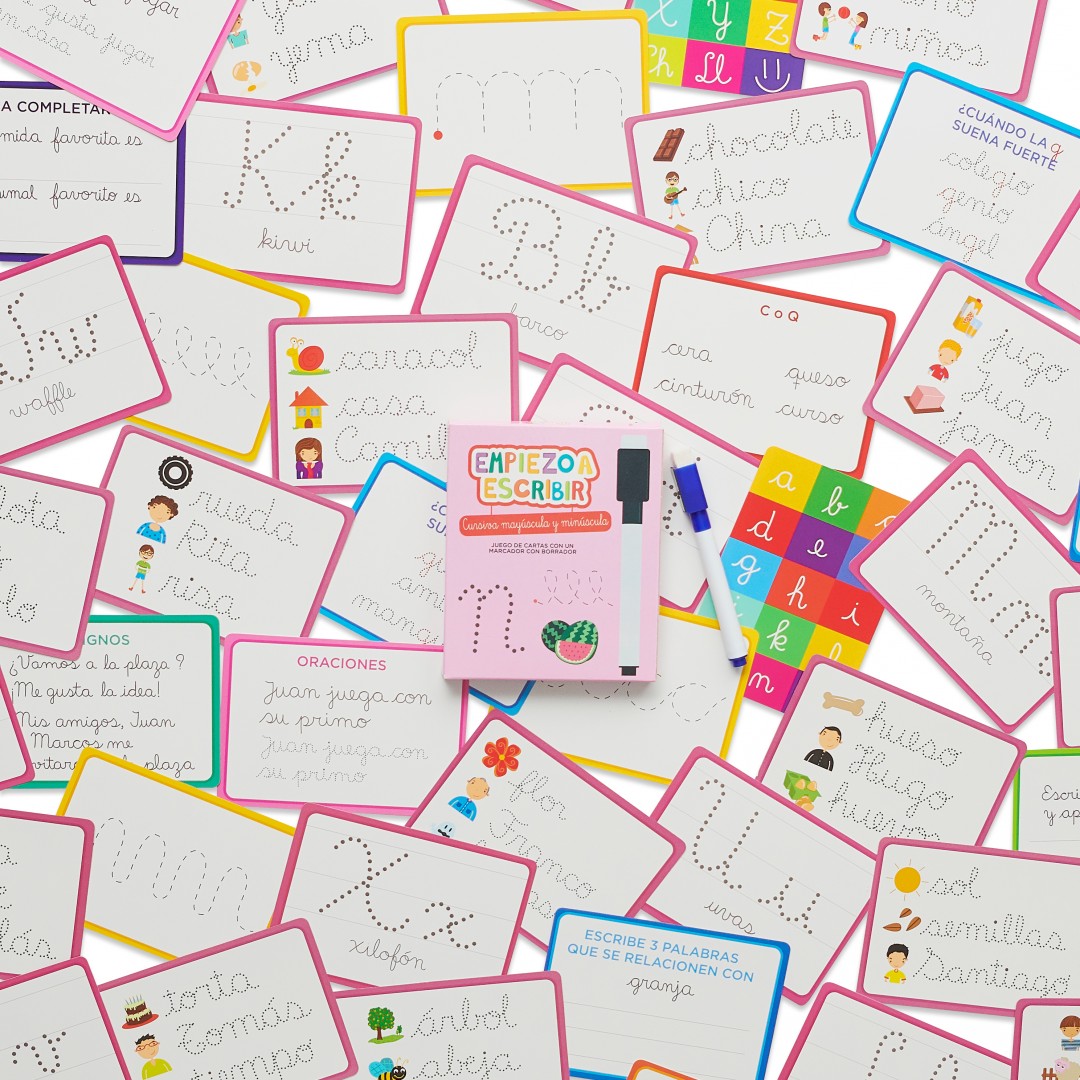 gusta jugar
en casa
yema
y
z
Ll
miños
A COMPLETAR
favorita es
favorito es
Kk
kiwi
chocolate
chico
China
¿CUÁNDO LA g
SUENA FUERTE
colegio
genio
ángel
Bb
barco
waffle
caracol
casa
C o Q
cera
queso
cinturón
curso
jugo
Juan
jamón
EMPIEZO A
ESCRIBIR
Cursiva mayúscula y minúscula
JUEGO DE CARTAS CON UN
MARCADOR CON BORRADOR
n
a
b
d
e
g
h
i
k
n
M m
montaña
¿Vamos a la plaza?
¡Me gusta la idea!
Mis amigos, Juan
Marcos me
plaza
ORACIONES
Juan juega con
su primo
Juan juega con
su primo
flor
Franco
hueso
Hugo
huevo
U u
uvas
X x
xilofón
sol
semillas
Santiago
ESCRIBE 3 PALABRAS
QUE SE RELACIONEN CON
granja
torta
Tomás
tiempo
árbol
abeja